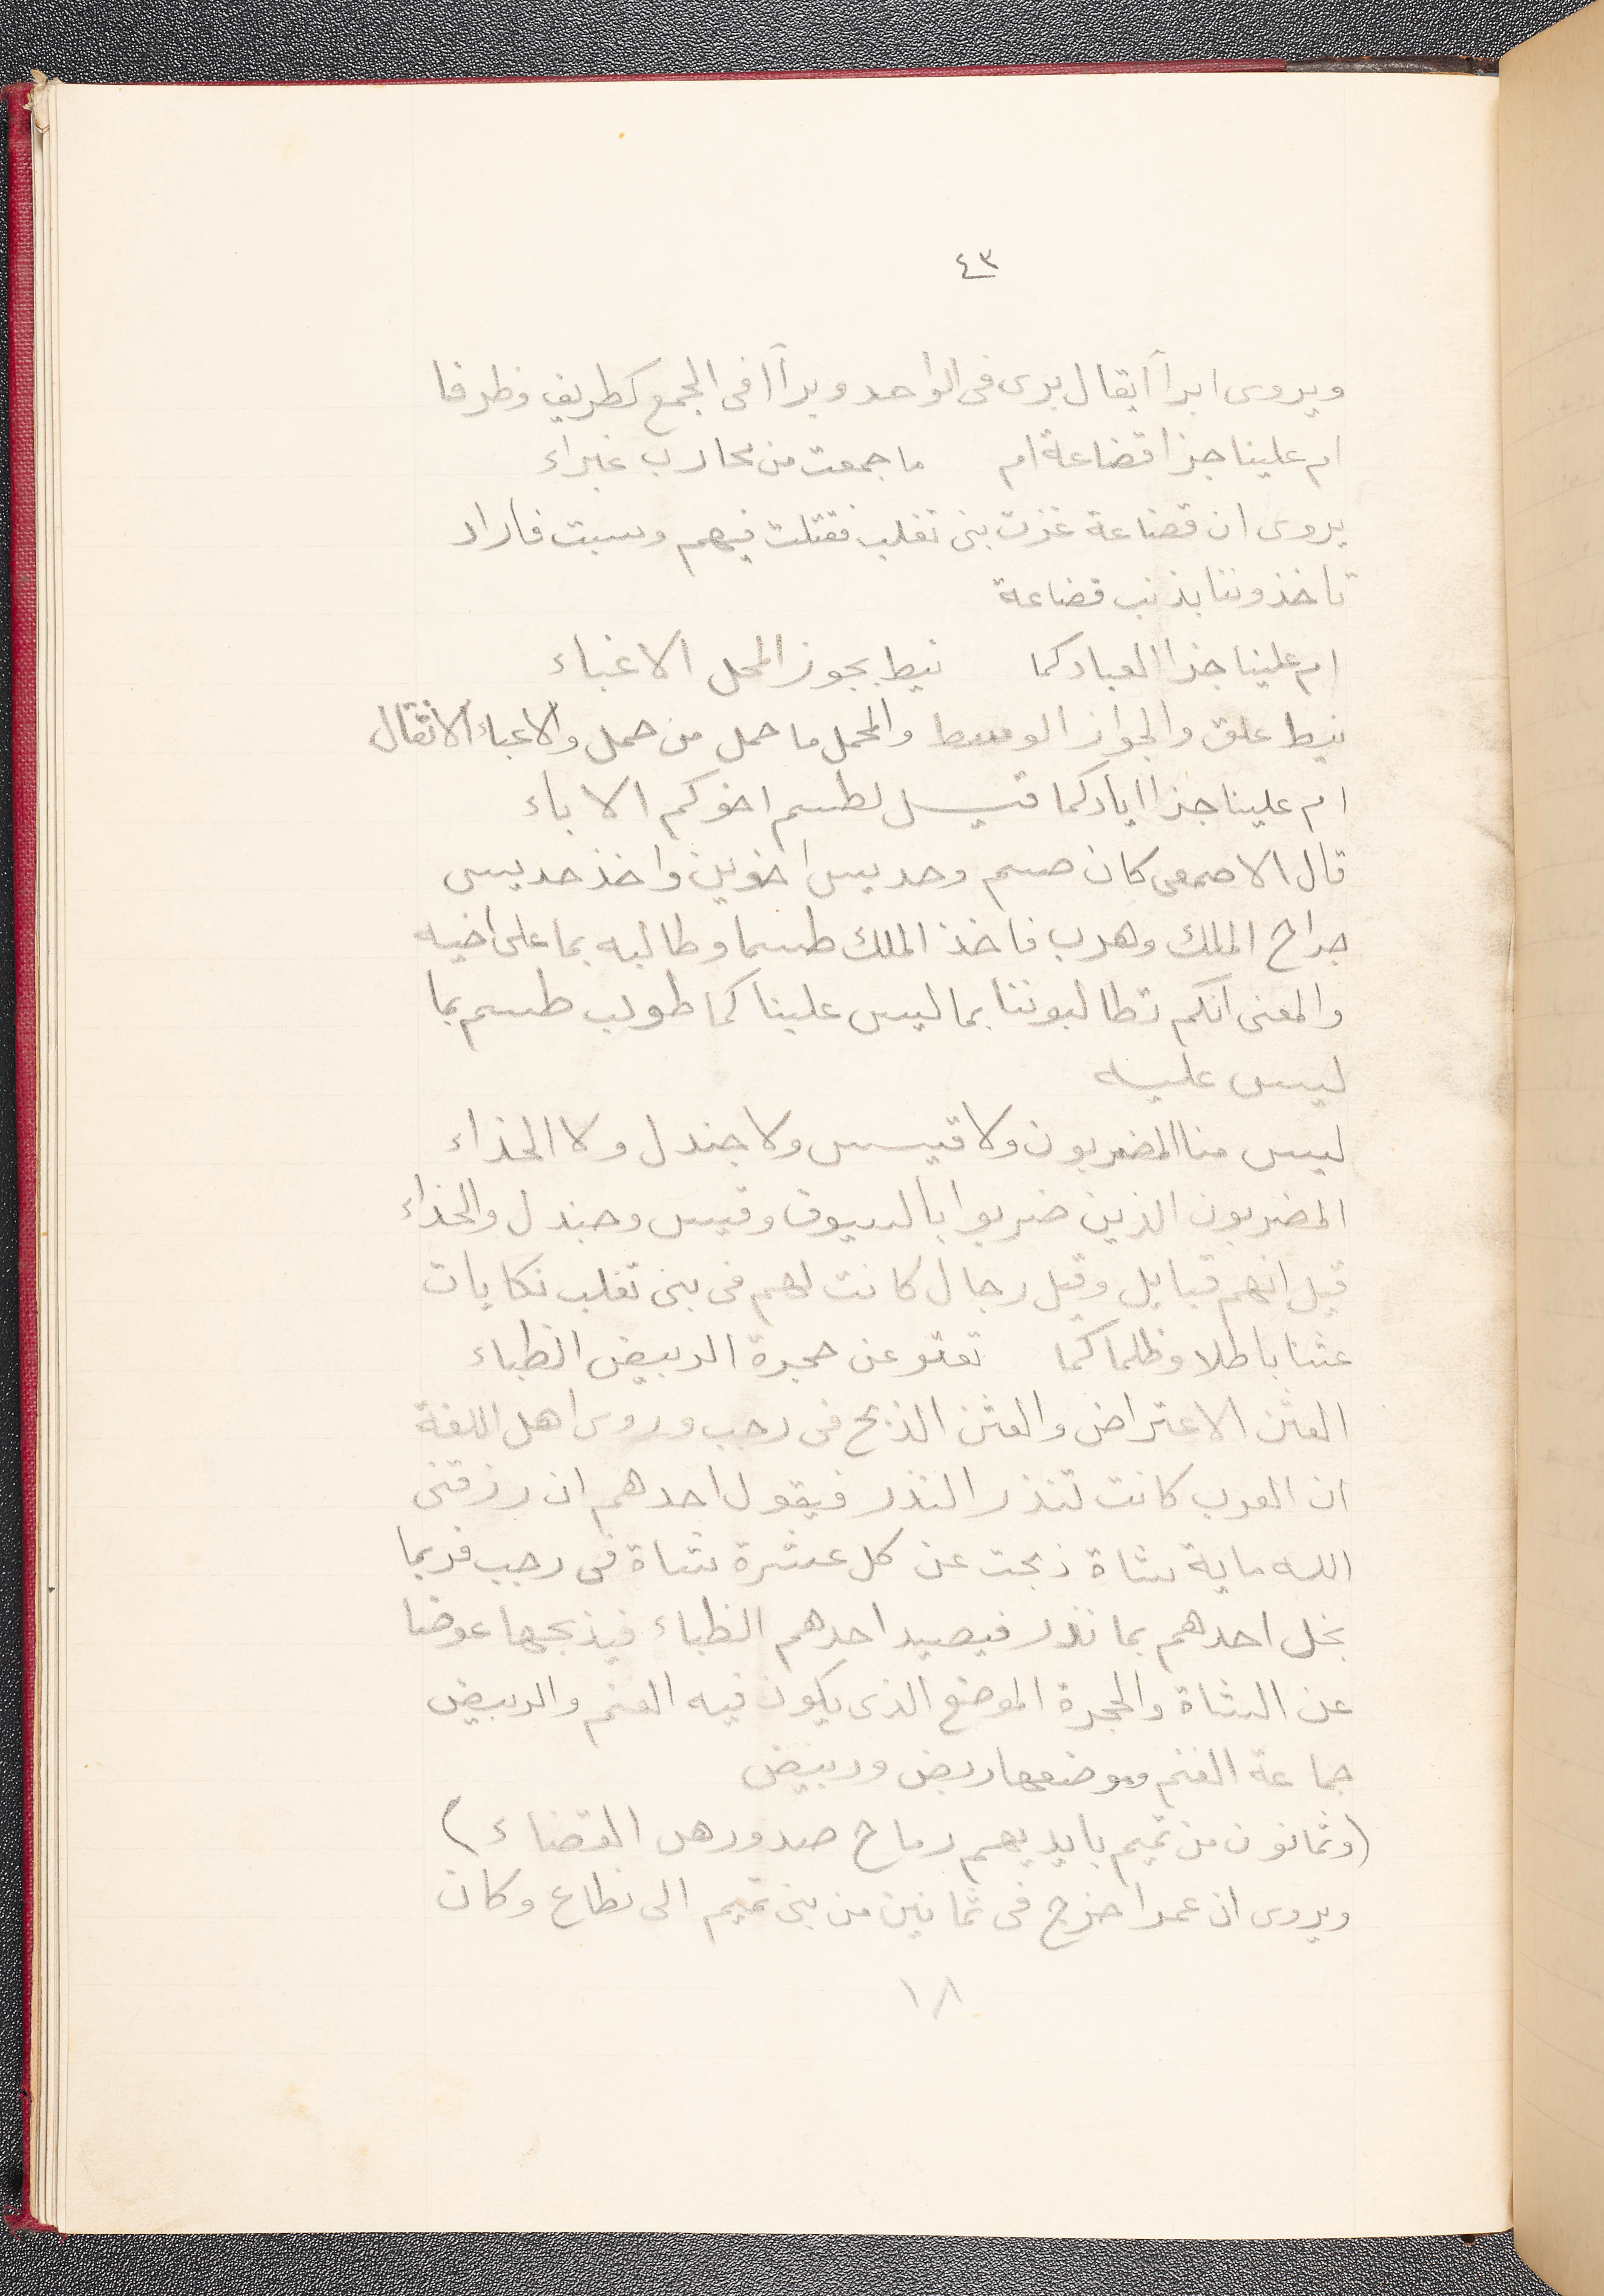 ٤٣
ويروى ابرآا يقال برى فى الواحد وبرآا فى الجمع كطريف وظرفا
ام علينا جزا قضاعة ام ما جمعت من محارب غبراء
يروى ان قضاعة غزت بنى تغلب فقتلت فيهم وسبت فاراد
تاخذوننا بذنب قضاعة
ام علينا جزا العباد كما نيط بجوز المحمل الاغباء
نيط علق والجواز الوسط والمحمل ما حمل من حمل والاعباء الاثقال
ام علينا جزا اياد كما قيل لطسم اخوكم الاباء
قال الاصمعى كان صسم وحديس اخوين واخذ حديس
جراح الملك وهرب فاخذ الملك طسما وطالبه بما على اخيه
والمعنى انكم تطالبوننا بما ليس علينا كما طولب طسم بما
ليس عليه
ليس منا المضربون ولا قيس ولا جندل ولا الحذاء
المضربون الذين ضربوا بالسيوف وقيس وجندل والحذاء
قيل انهم قبايل وقيل رجال كانت لهم فى بنى تغلب نكايات
عثنا باطلا وظلما كما تعتو عن حجرة الربيض الظباء
العثن الاعتراض والعثن الذبح فى رجب وروى اهل اللغة
ان العرب كانت تنذر النذر فيقول احدهم ان رزقنى
الله ماية شاة ذبحت عن كل عشرة شاة فى رجب فربما
بخل احدهم بما نذر فيصيد احدهم الظباء فيذبحها عوضا
عن الشاة والحجرة الموضع الذى يكون فيه الغنم والربيض
جماعة الغنم وموضعها ربض وربيض
(وثمانون من تميم بايديهم رماح صدورهن القضاء)
ويروى ان عمرا خرج فى ثمانين من بنى تميم الى نطاع وكان
١٨